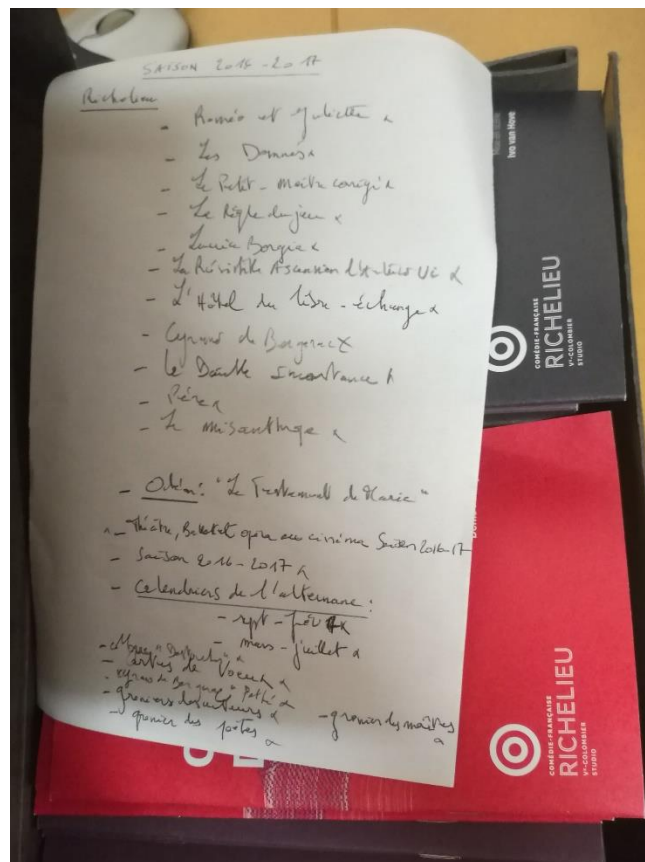 SAISON 2016-2017
Richelieu
- Roméo et Juliette x
- Les Damnés x
- Le Petit-Maître corrigé x
- La Règle du jeu x
- Lucrèce Borgia x
- La Résistible Ascension d'Arturo Ui x
- L'Hôtel du libre-échange x
- Cyrano de Bergerac x
- Le Double Inconstance x
- Père x
- Le misanthrope x
- Odéon: "Le Testament de Marie"
- Théâtre, Ballet et opéra au cinéma Saison 2016-17
- Saison 2016-2017 x
- Calendriers de l'alternance:
- sept-fév x
- mars-juillet x
- cartes de Voeux x
- Cyrano de Bergerac " Pathé x
- greniers des acteurs x
- grenier des maîtres x
- grenier des poètes x
Mise en scène
Ivo van Hove
COMÉDIE-FRANÇAISE
RICHELIEU
Vx-COLOMBIER
STUDIO
COMÉDIE-FRANÇAISE
RICHELIEU
Vx-COLOMBIER
STUDIO